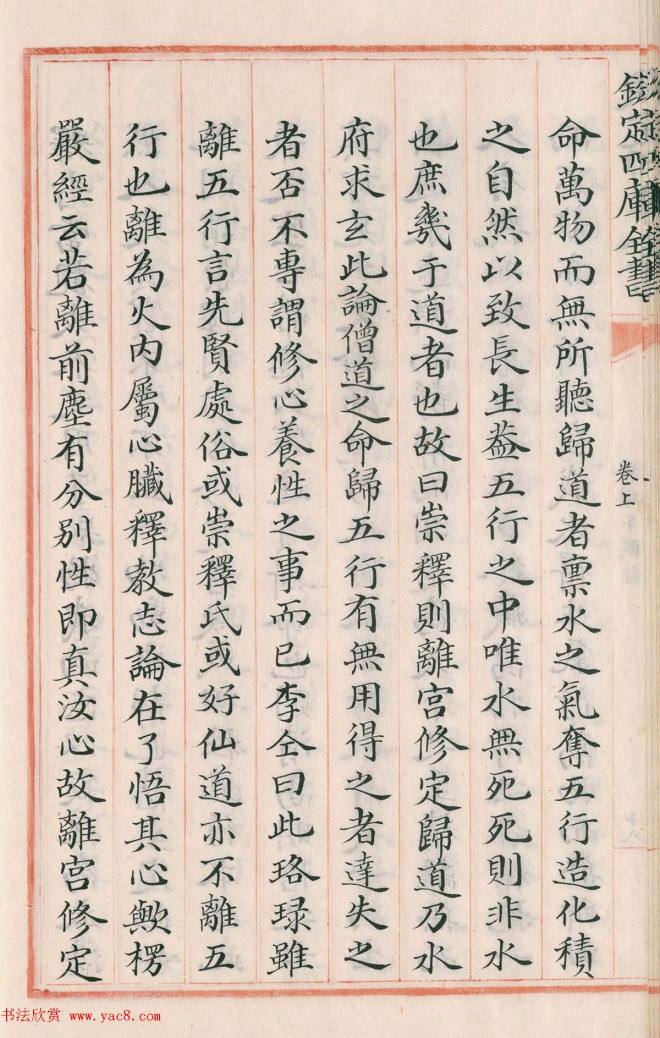 欽定四庫全書
卷上
命萬物而無所聽歸道者禀水之氣奪五行造化積
之自然以致長生葢五行之中唯水無死死則非水
也庶幾于道者也故曰崇釋則離宫修定歸道乃水
府求玄此論僧道之命歸五行有無用得之者達失之
者否不專謂修心養性之事而已李仝曰此珞琭雖
離五行言先賢處俗或崇釋氏或好仙道亦不離五
行也離為火内屬心臟釋教志論在了悟其心歟楞
嚴經云若離前塵有分别性即真汝心故離宫修定
书法欣赏 www.yac8.com